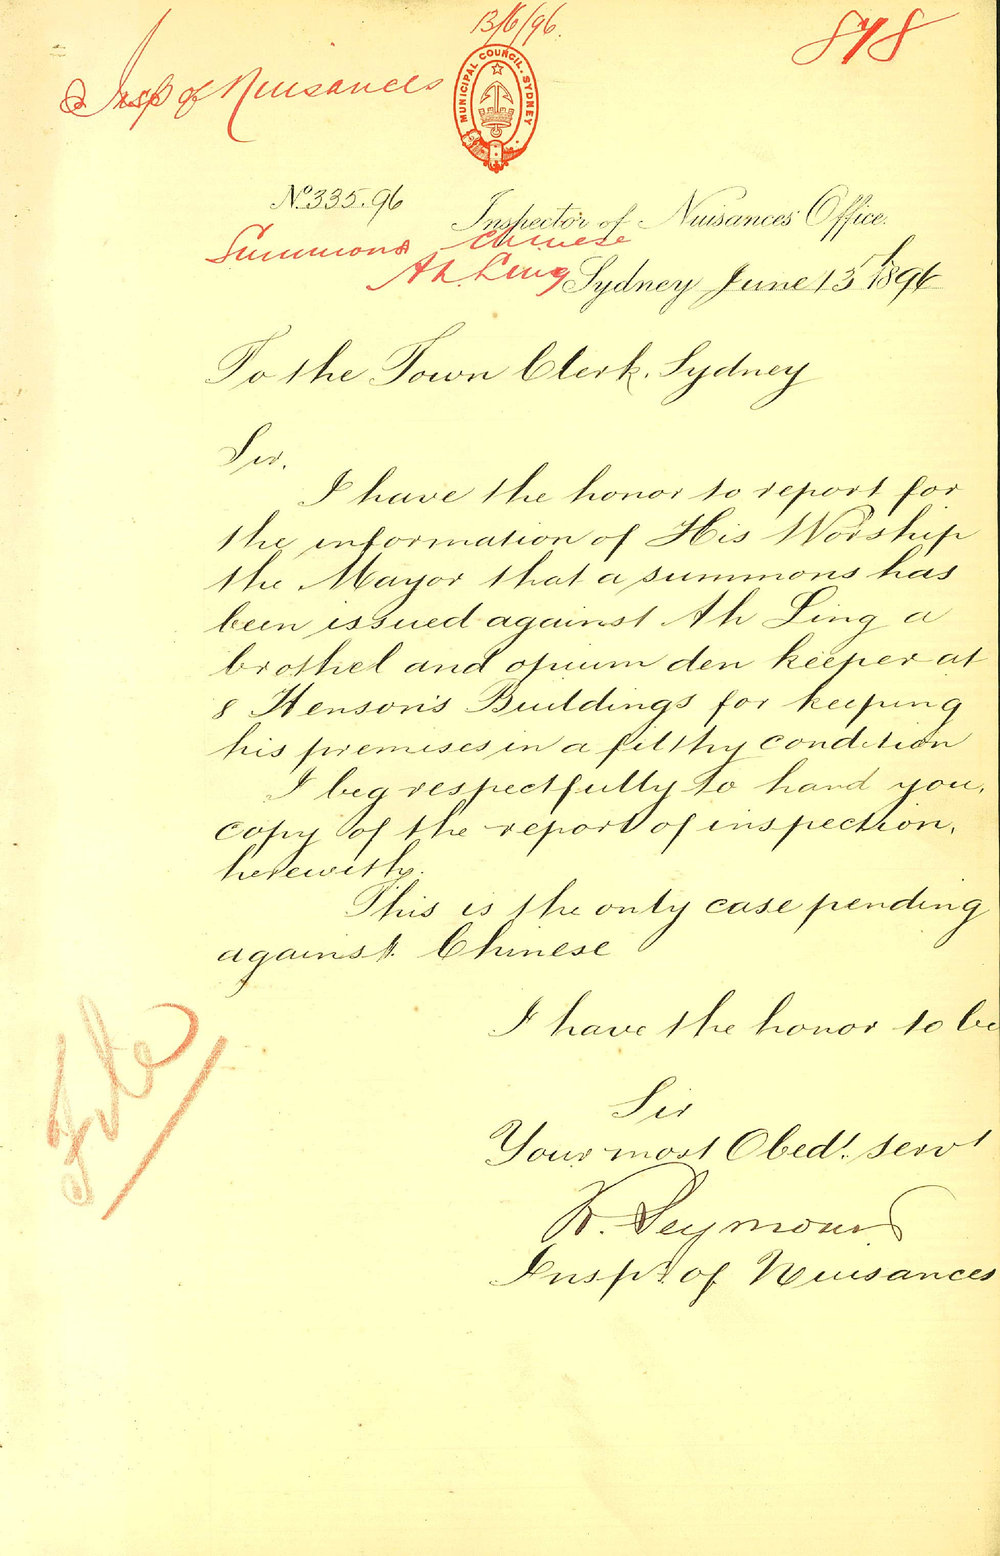 13/6/96.
878
Insp of Nuisances
MUNICIPAL COUNCIL. SYDNEY
No 335.96
Inspector of Nuisances Office.
Summons Chinese
Ah. Ling
Sydney June 13th 1896
To the Town Clerk. Sydney
Sir.
I have the honor to report for
the information of His Worship
the Mayor that a summons has
been issued against Ah Ling a
brothel and opium den keeper at
8 Henson's Buildings for keeping
his premises in a filthy condition
I beg respectfully to hand you,
copy of the report of inspection,
herewith.
This is the only case pending
against Chinese
I have the honor to be
Sir
Your most Obedt. servt
R. Seymour
Inspr. of Nuisances
File